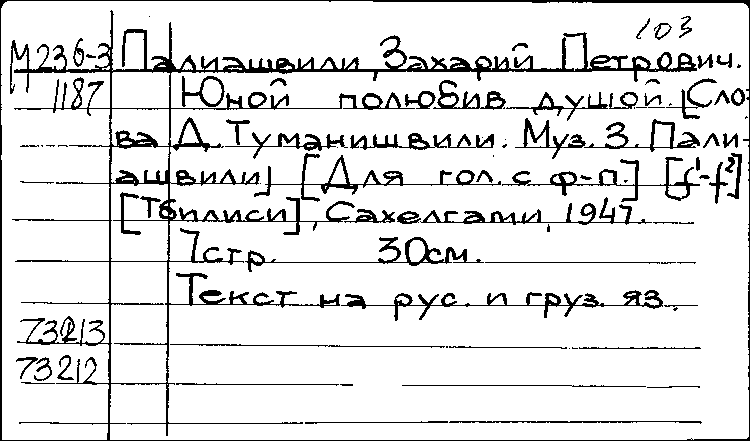 103
М236-3 Палиашвили, Захарий Петрович.
1187 Юной полюбив душой. [Сло-
ва Д. Туманишвили. Муз. З. Пали-
ашвили] [Для гол. с ф-п.] [f¹-f²]
[Тбилиси], Сахелгами, 1947.
7стр. 30см.
Текст на рус. и груз. яз.
73213
73212